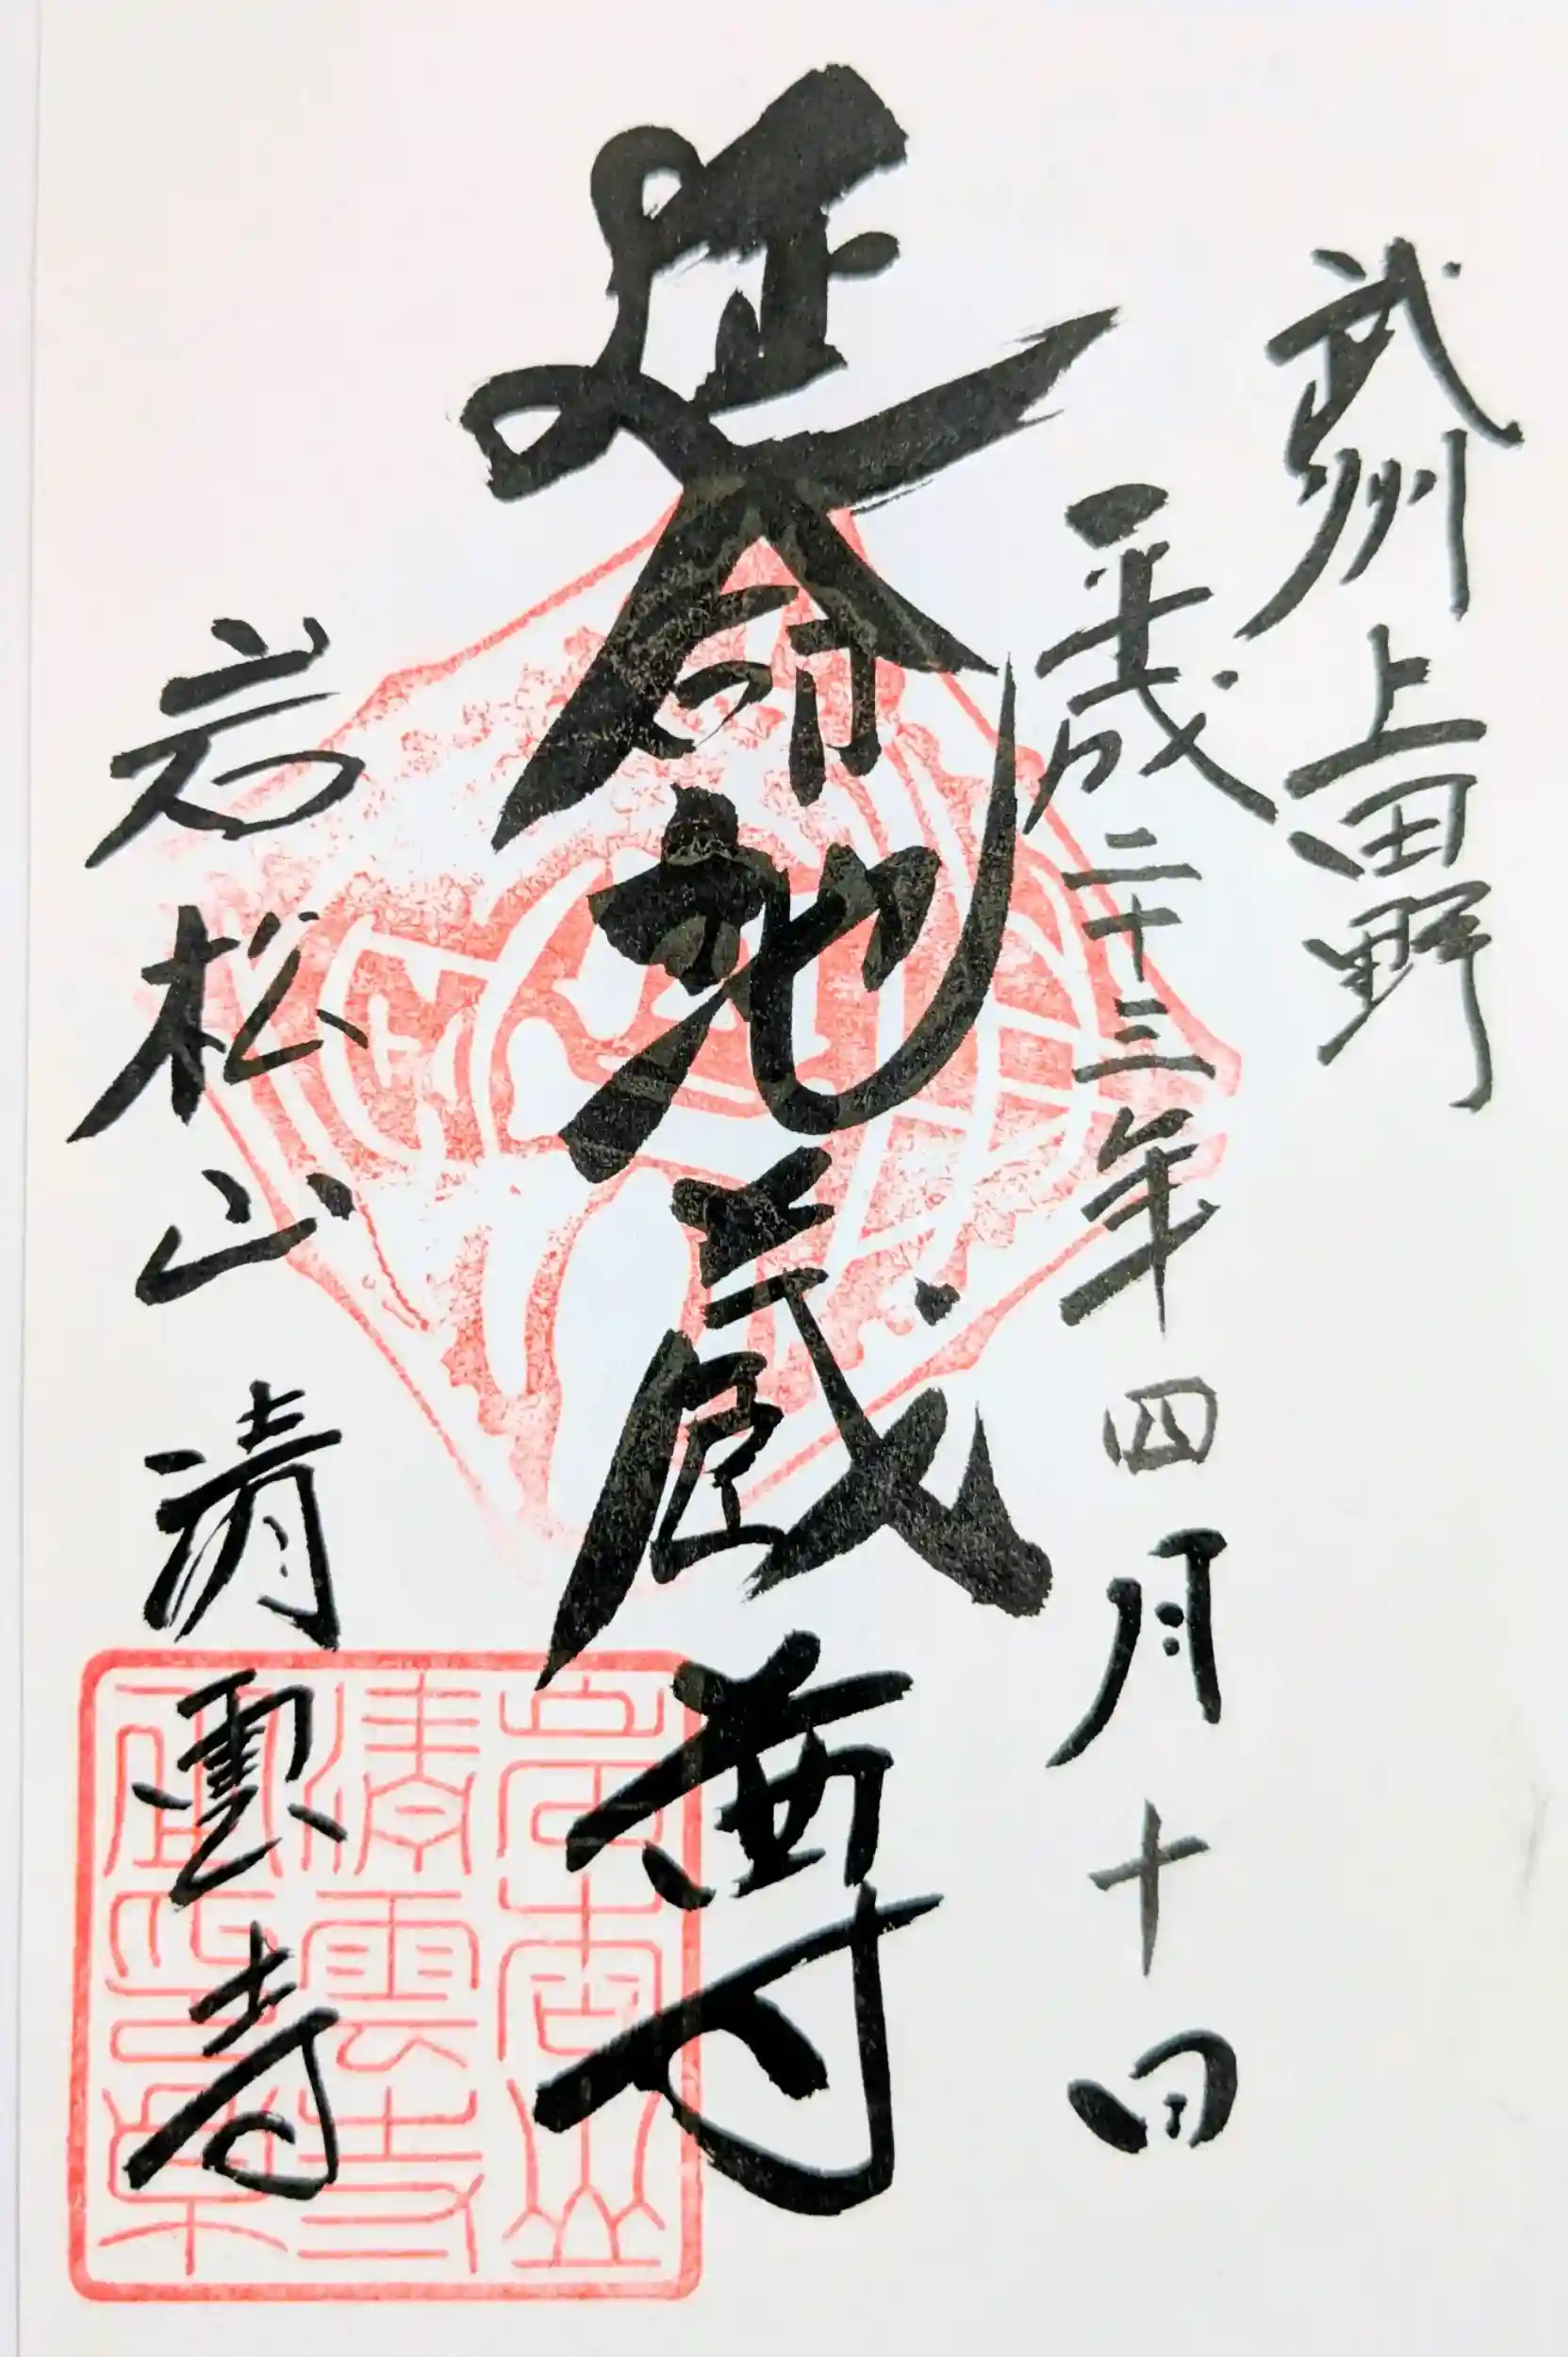 武州上田野
平成二十三年四月十日
延命地蔵尊
岩松山 清雲寺